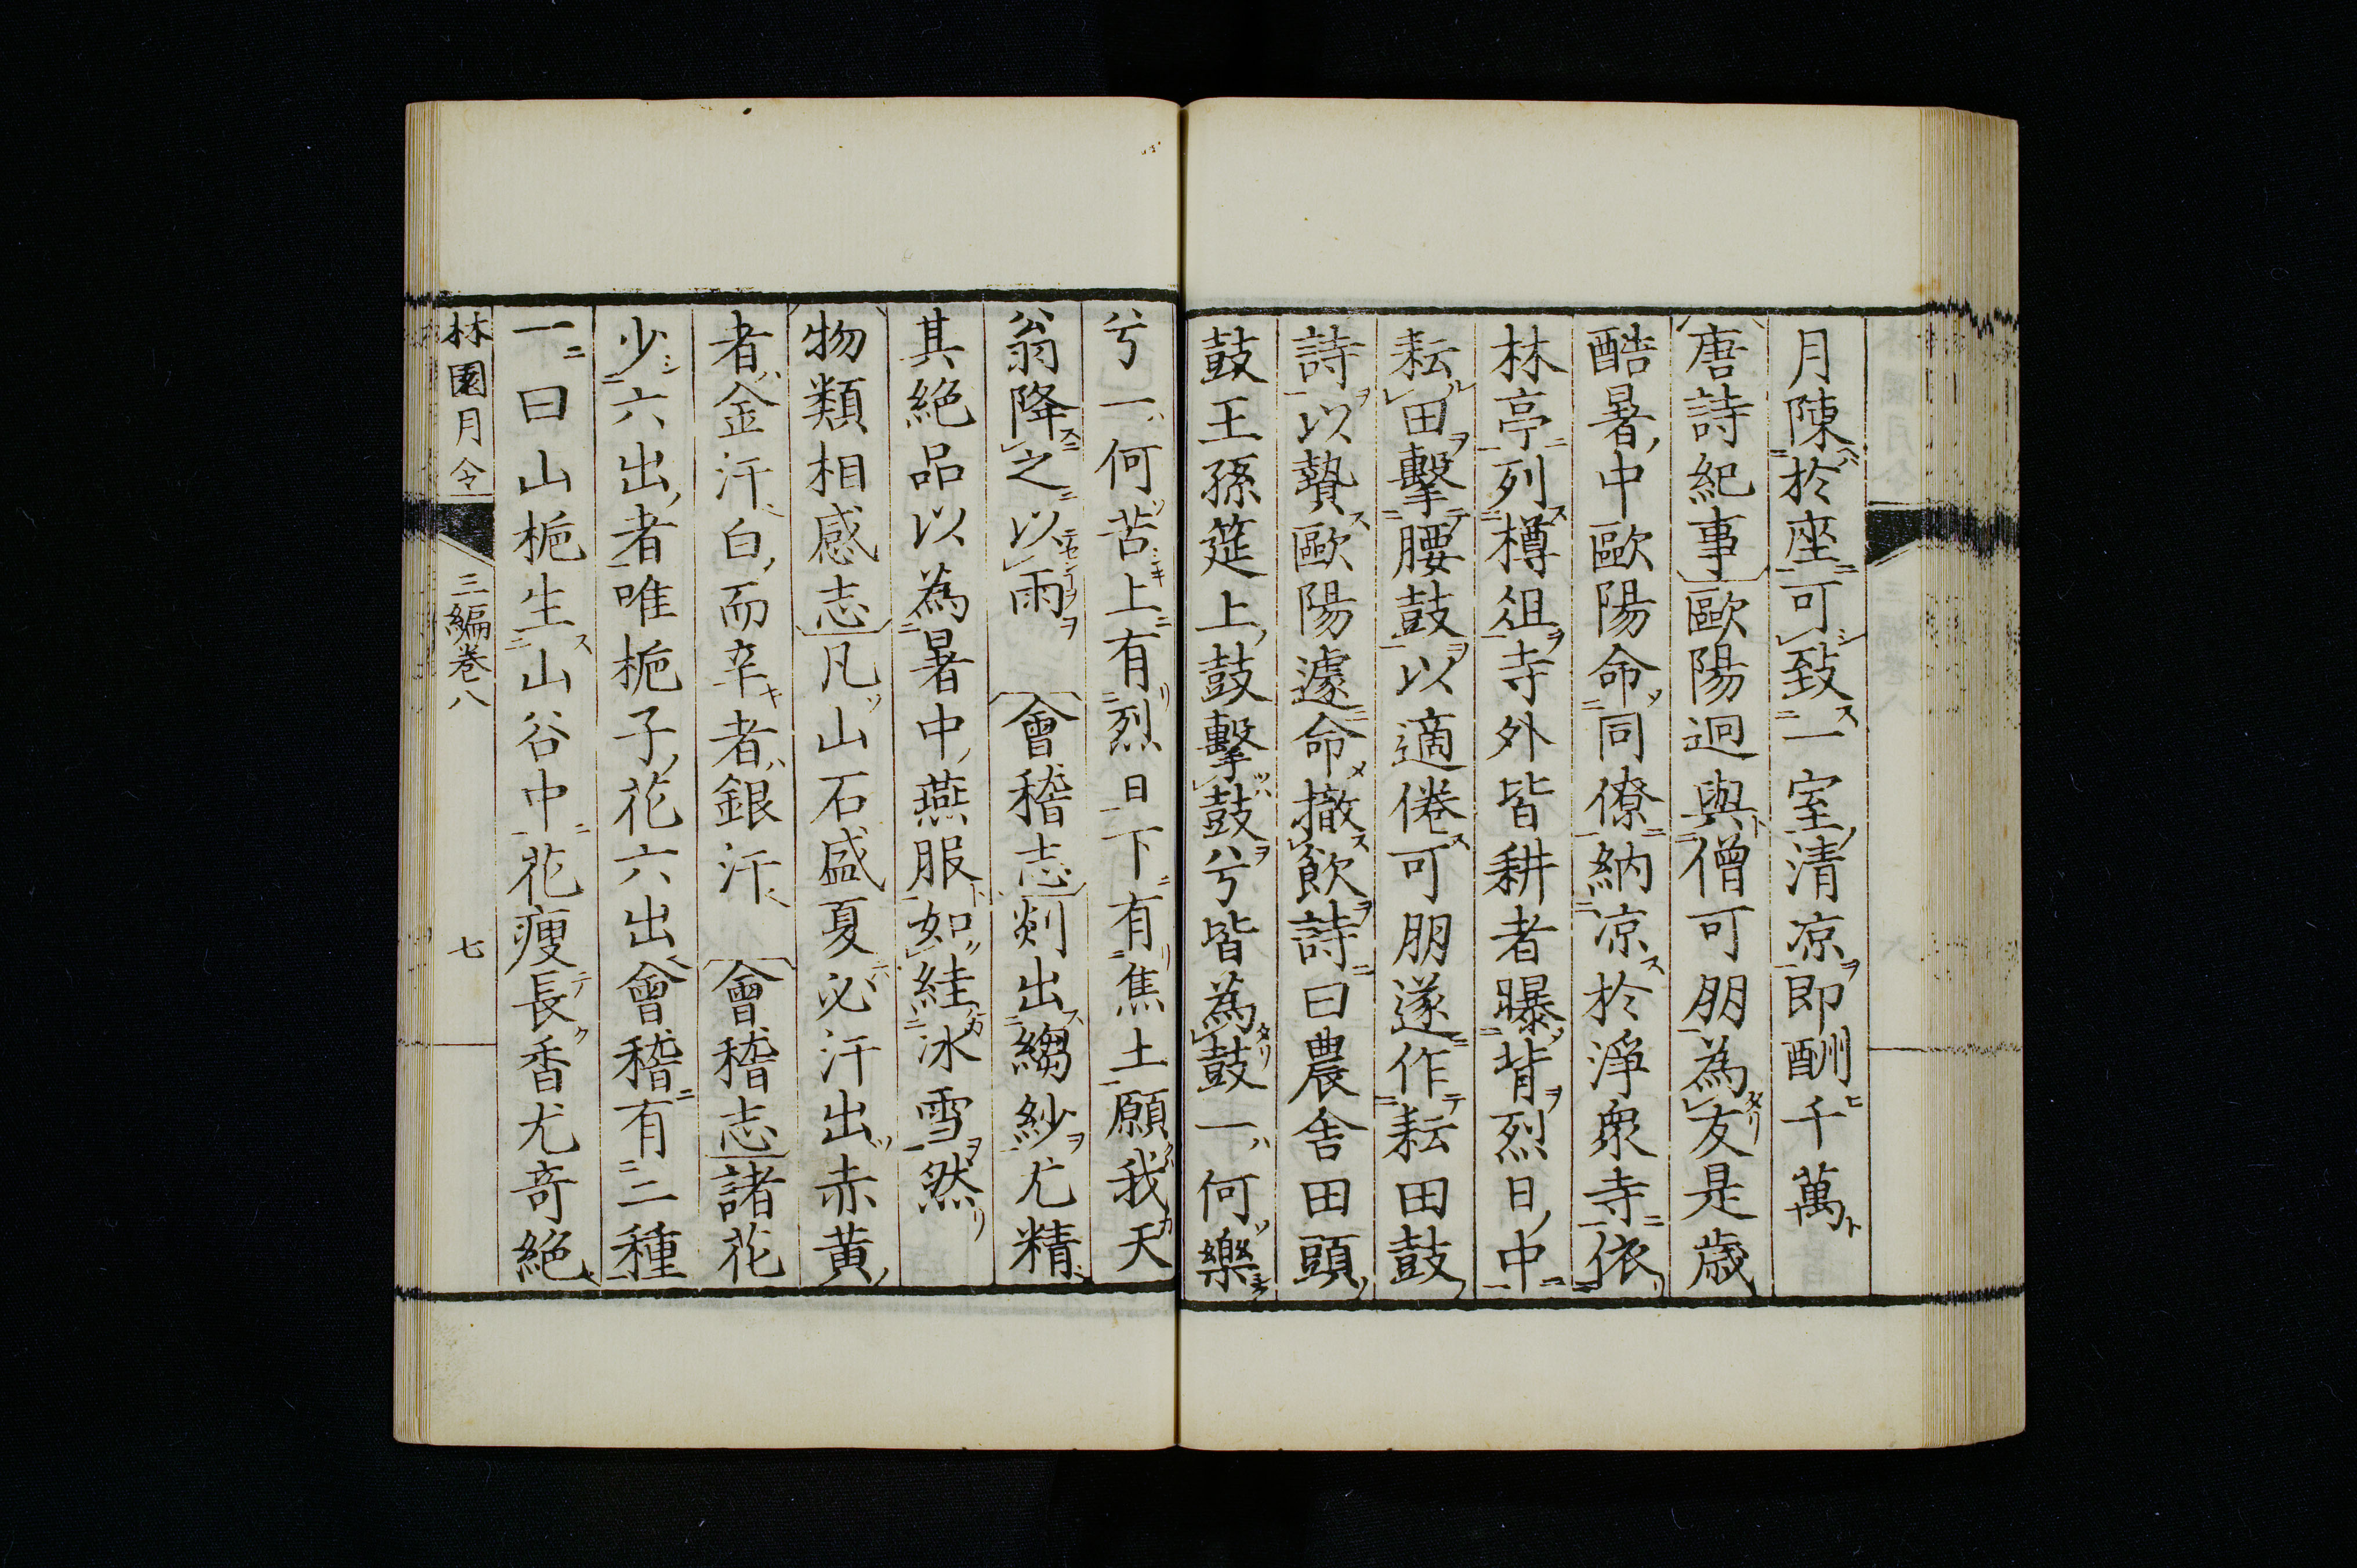 月陳於座可致一室清凉即酬千萬
唐詩紀事歐陽迥與僧可朋為友是歳
酷暑中歐陽命同僚納凉於淨衆寺依
林亭列樽俎寺外皆耕者曝背烈日中
耘田擊腰鼓以適倦可朋遂作耘田鼓
詩以贄歐陽遽命撤飲詩曰農舍田頭
鼓王孫筵上鼓擊鼓兮皆為鼓一何樂
兮一何苦上有烈日下有焦土願我天
翁降之以雨　會稽志剡出縐紗尤精
其絶品以為暑中燕服如絓冰雪然
物類相感志凡山石盛夏必汗出赤黄
者金汗白而辛者銀汗　會稽志諸花
少六出者唯梔子花六出會稽有二種
一曰山梔生山谷中花瘦長香尤奇絶
林園月令　三編卷八　七